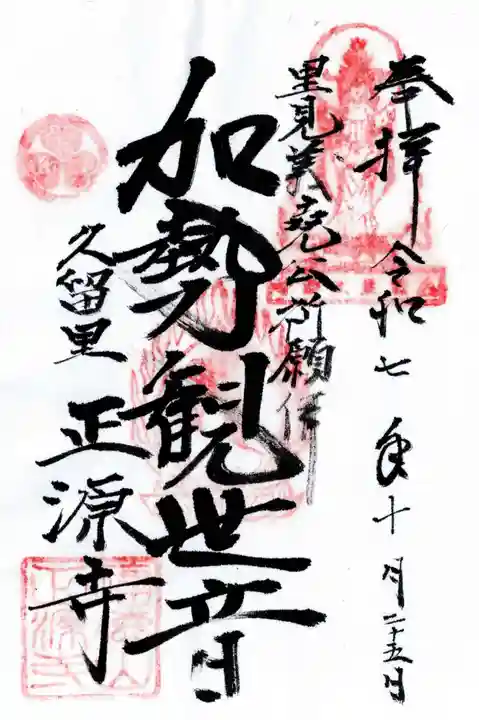 奉拝 令和七年十月二十五日
里見義堯公祈願佛
加勢観世音
久留里 正源寺